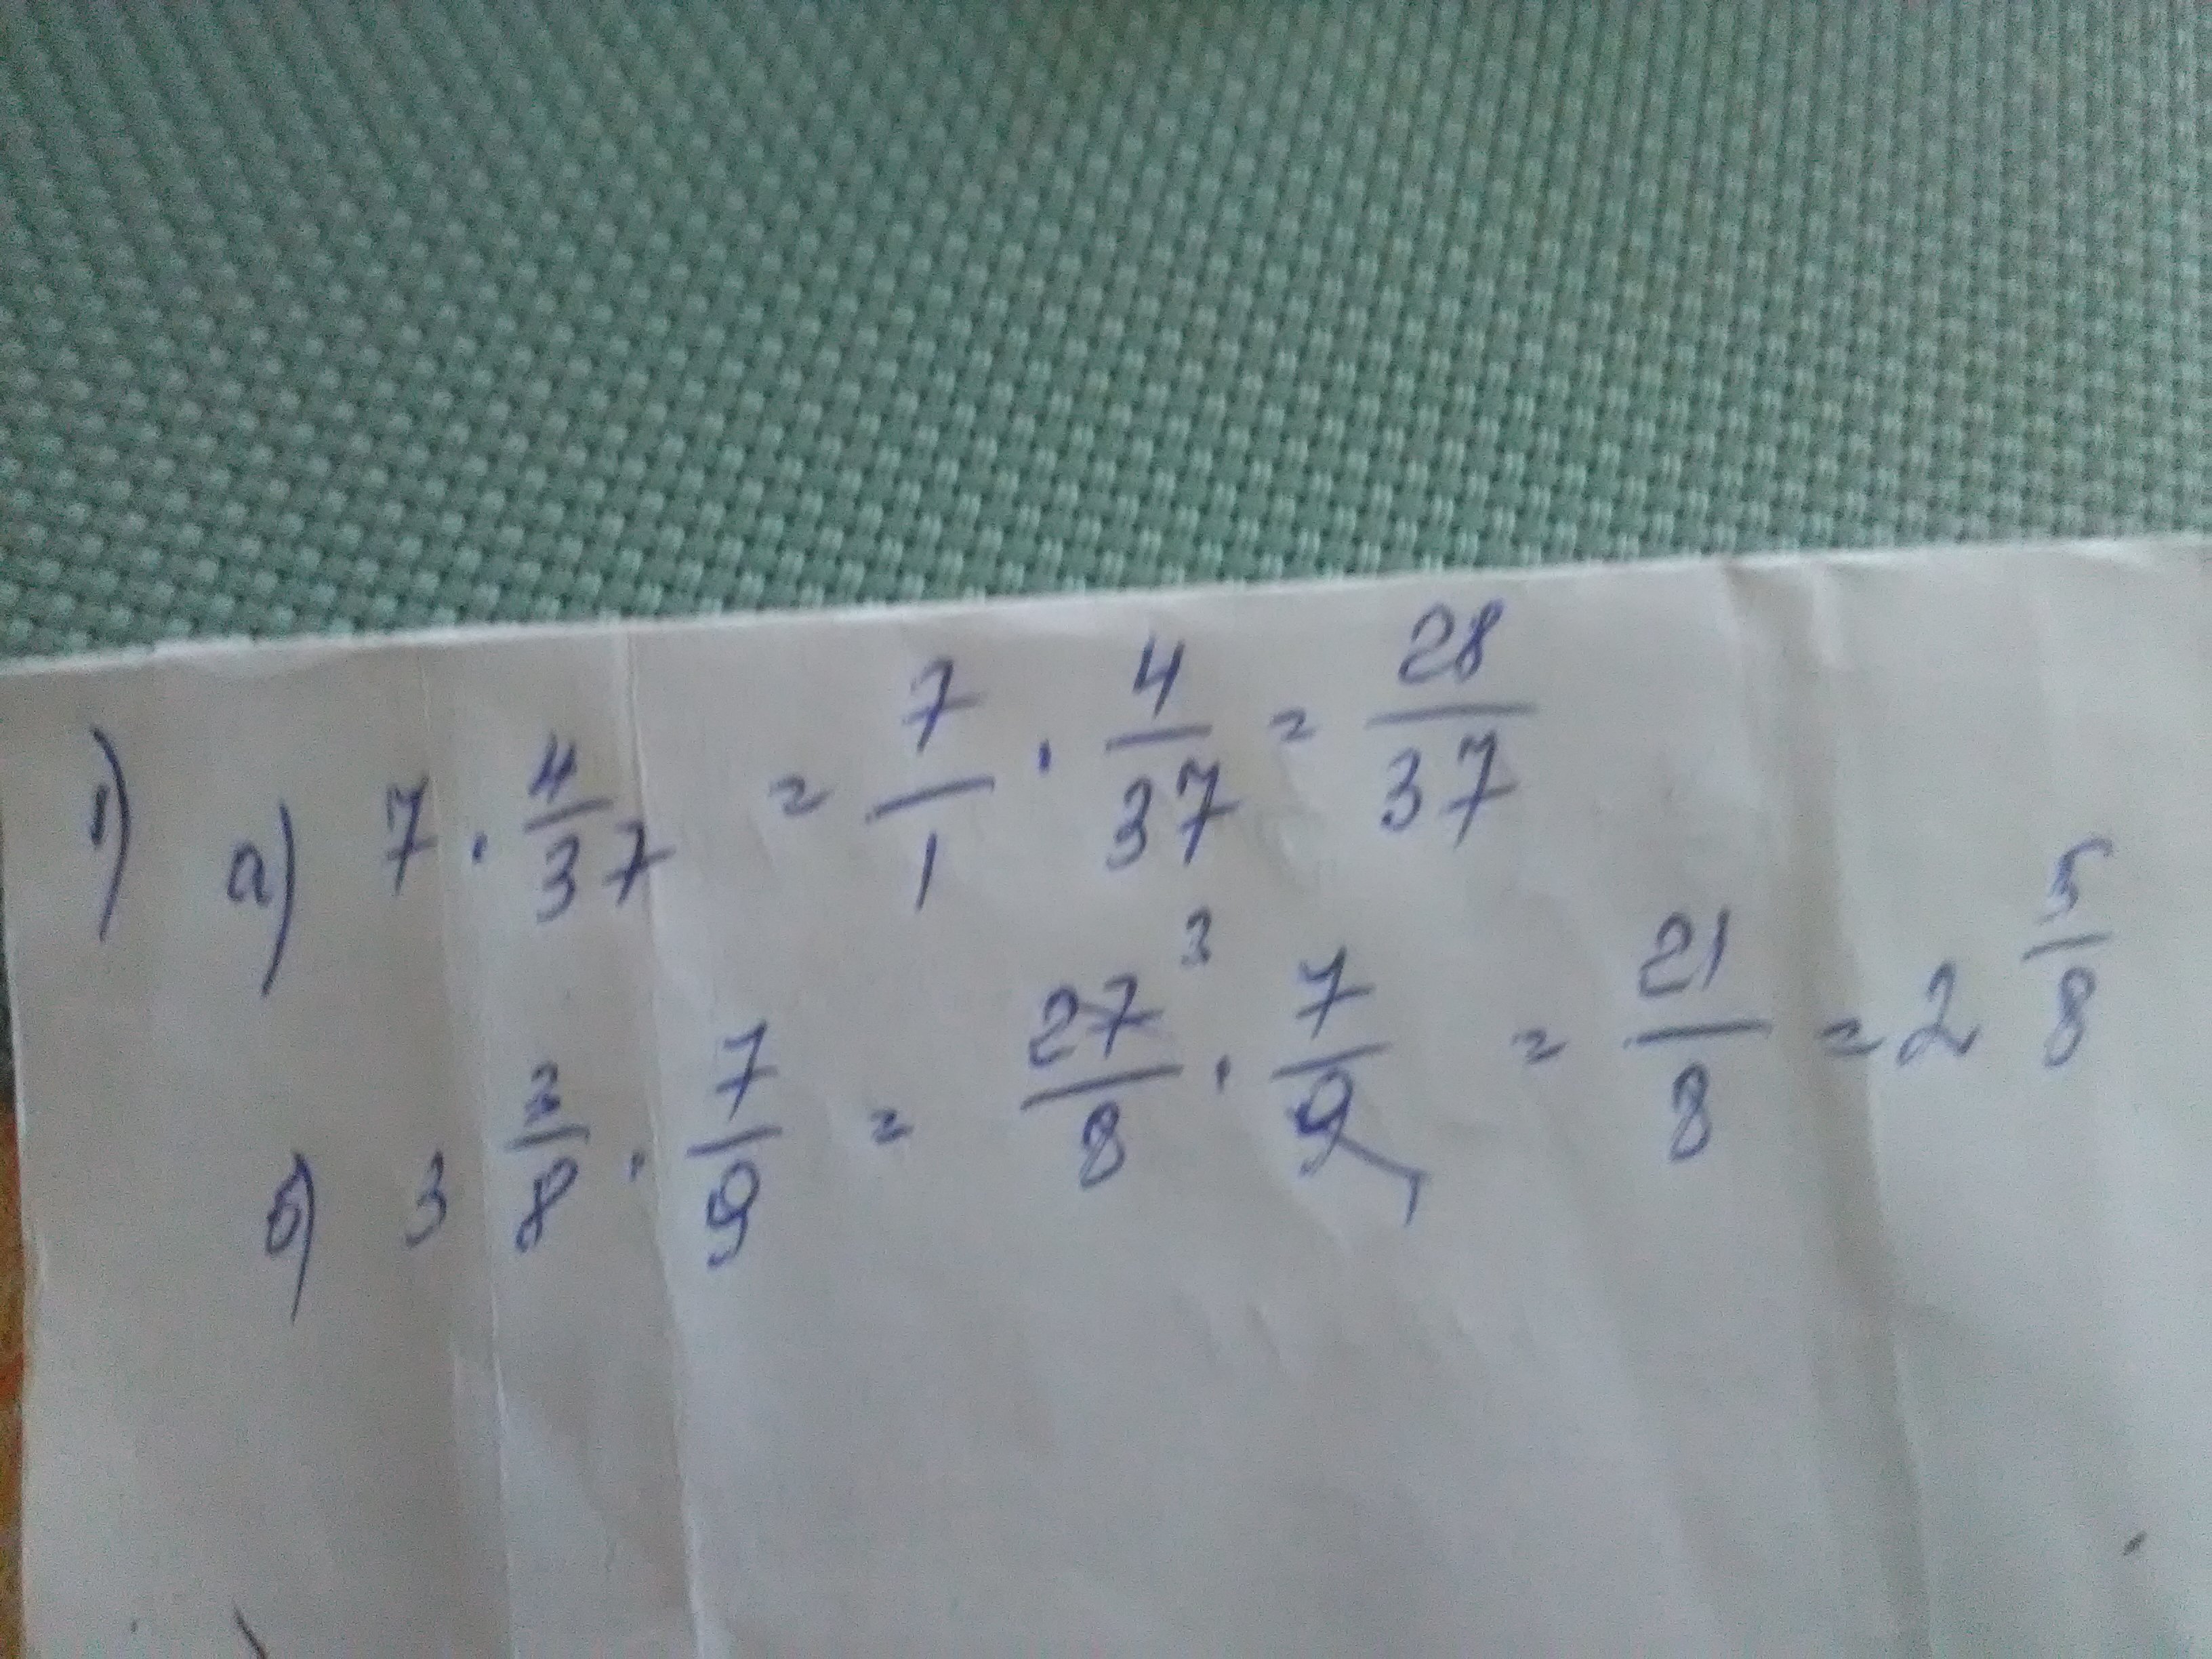 1) а) 7 · 4/37 = 7/1 · 4/37 = 28/37
б) 3 3/8 · 7/9 = 27³/8 · 7/9₁ = 21/8 = 2 5/8